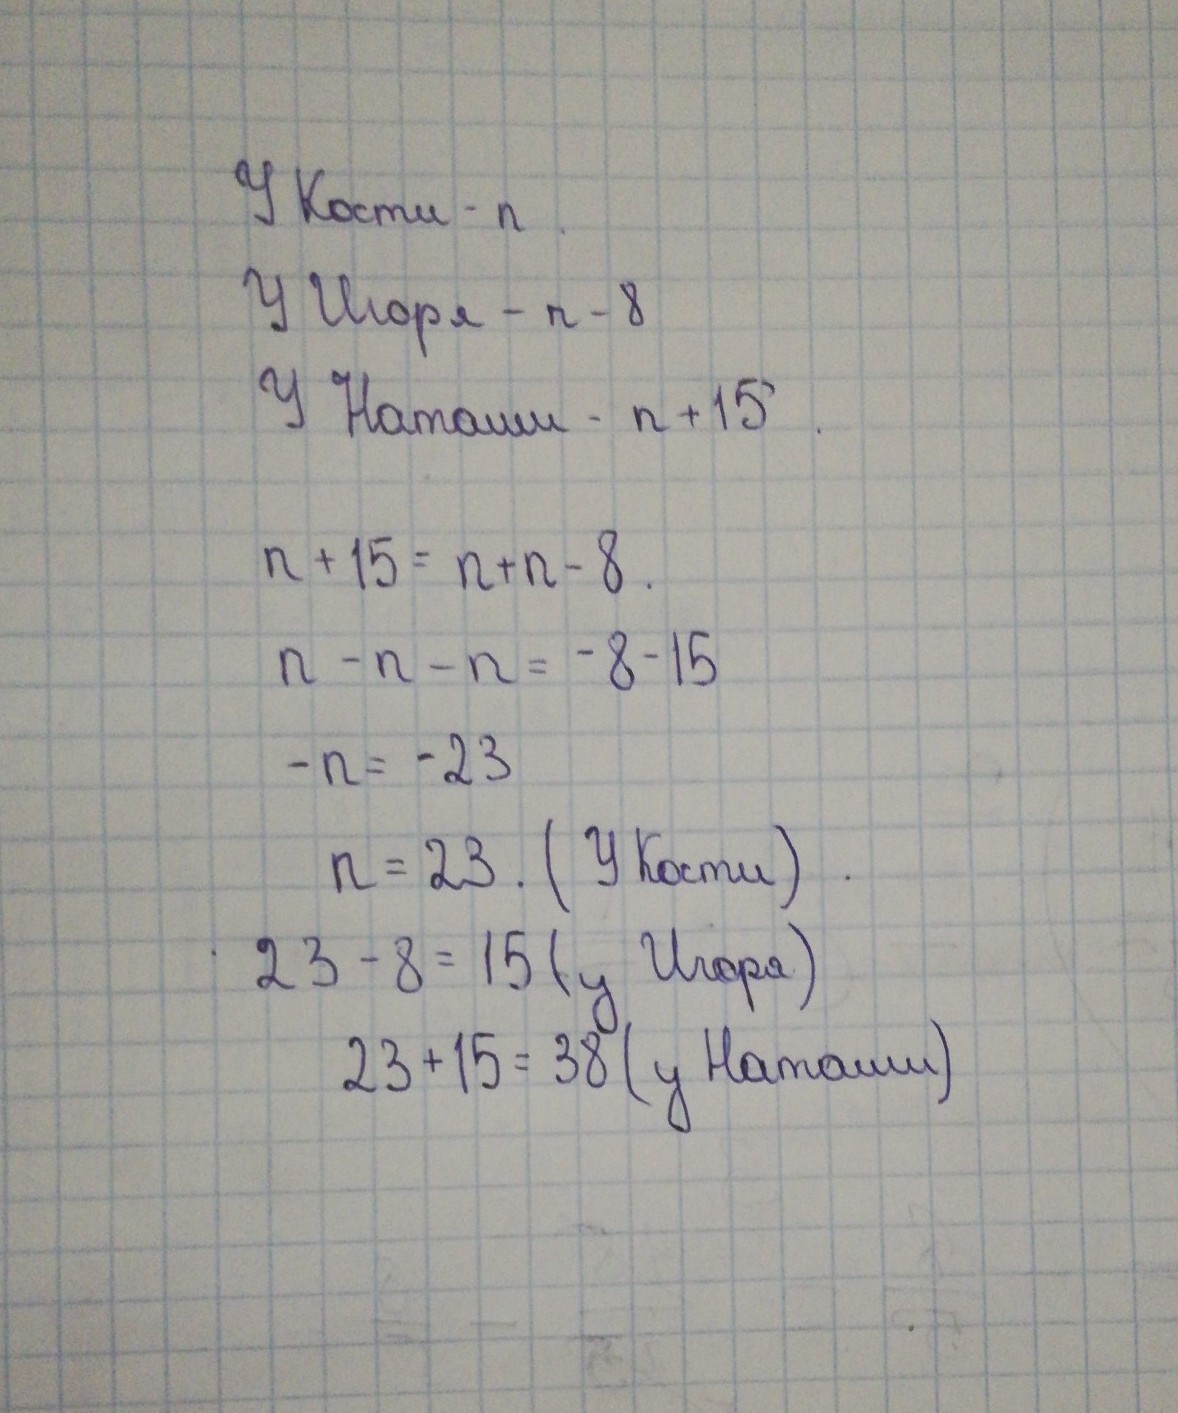 У Кости - n.
У Игоря - n - 8
У Наташи - n + 15.
n + 15 = n + n - 8.
n - n - n = -8 - 15
-n = -23
n = 23. (У Кости).
23 - 8 = 15 (у Игоря)
23 + 15 = 38 (у Наташи)